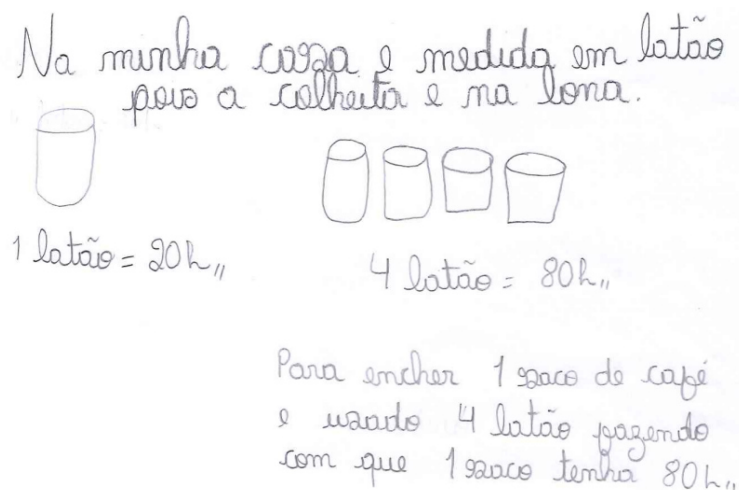 Na minha cassa e medida em latão
pois a colheita e na lona.
1 latão = 20L,,
4 latão = 80L,,
Para encher 1 ssaco de café
e usado 4 latão fazendo
com que 1 ssaco tenha 80L,,